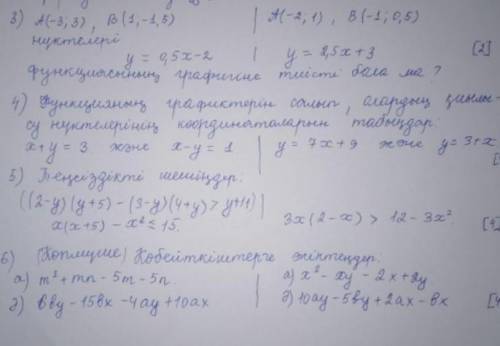 3) A(-3;3), B(1,-1,5) | A(-2,1), B(-1;0,5)
нүктелері
y = 0,5x-2 | y = 2,5x+3 [2]
функциясының графигіне тиісті бола ма?
4) Функцияның графиктерін салып, олардың қиылы-
су нүктелерінің координаталарын табыңдар:
x+y = 3 және x-y = 1 | y = 7x+9 және y = 3+x
5) Теңсіздікті шешіңдер:
((2-y)(y+5) - (3-y)(4+y) > y+11)
x(x+5) - x² ≤ 15. | 3x(2-x) > 12-3x² [
6) (Көпмүше) Көбейткіштерге жіктеңдер:
а) m²+mn-5m-5n | а) x²-xy-2x+2y
б) 6by-15bx-4ay+10ax | б) 10ay-5by+2ax-bx [4